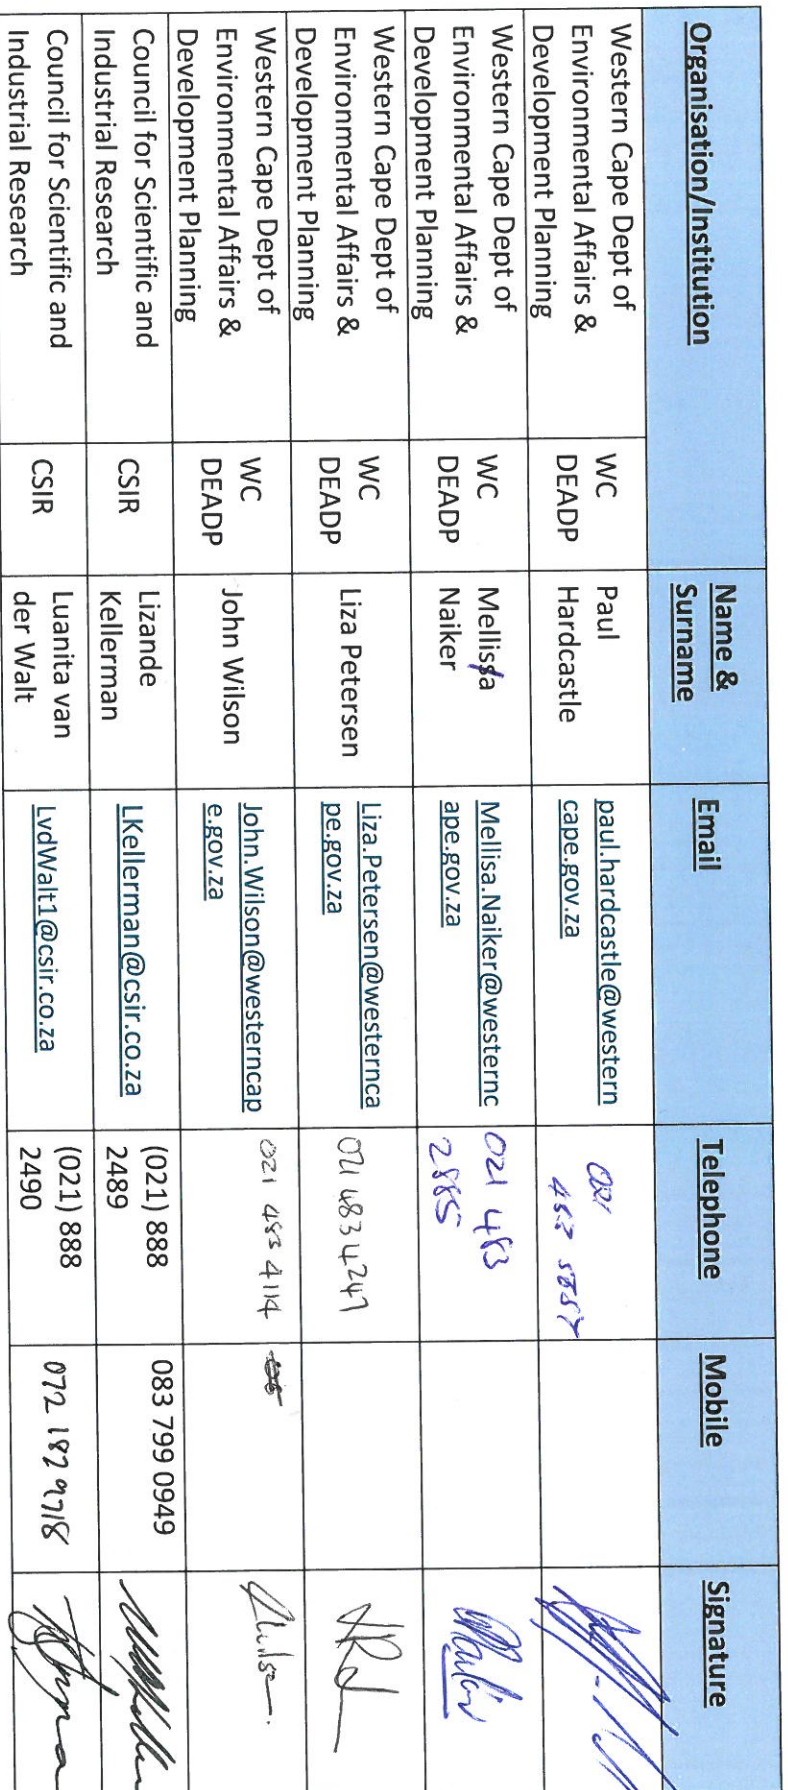 Organisation/Institution
Name &
Surname
Email
Telephone
Mobile
Signature
Western Cape Dept of
Environmental Affairs &
Development Planning
WC
DEADP
Paul
Hardcastle
paul.hardcastle@western
cape.gov.za
021
Western Cape Dept of
Environmental Affairs &
Development Planning
WC
DEADP
Mellissa
Naiker
Mellisa.Naiker@westernc
ape.gov.za
021 483
2885
Western Cape Dept of
Environmental Affairs &
Development Planning
WC
DEADP
Liza Petersen
Liza.Petersen@westernca
pe.gov.za
021 483 4247
Western Cape Dept of
Environmental Affairs &
Development Planning
WC
DEADP
John Wilson
John.Wilson@westerncap
e.gov.za
021 483 4114
Council for Scientific and
Industrial Research
CSIR
Lizande
Kellerman
LKellerman@csir.co.za
(021) 888
2489
083 799 0949
Council for Scientific and
Industrial Research
CSIR
Luanita van
der Walt
LvdWalt1@csir.co.za
(021) 888
2490
072 182 9718